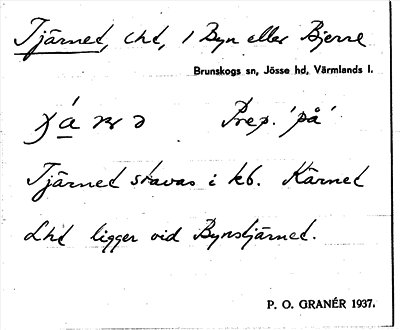 Tjärnet, Lht, 1 Byn eller Bjerre
Brunskogs sn, Jösse hd, Värmlands l.
Prep. 'på'
Tjärnet stavas i kb. Kärnet
Lht ligger vid Bynstjärnet.
P. O. GRANÉR 1937.